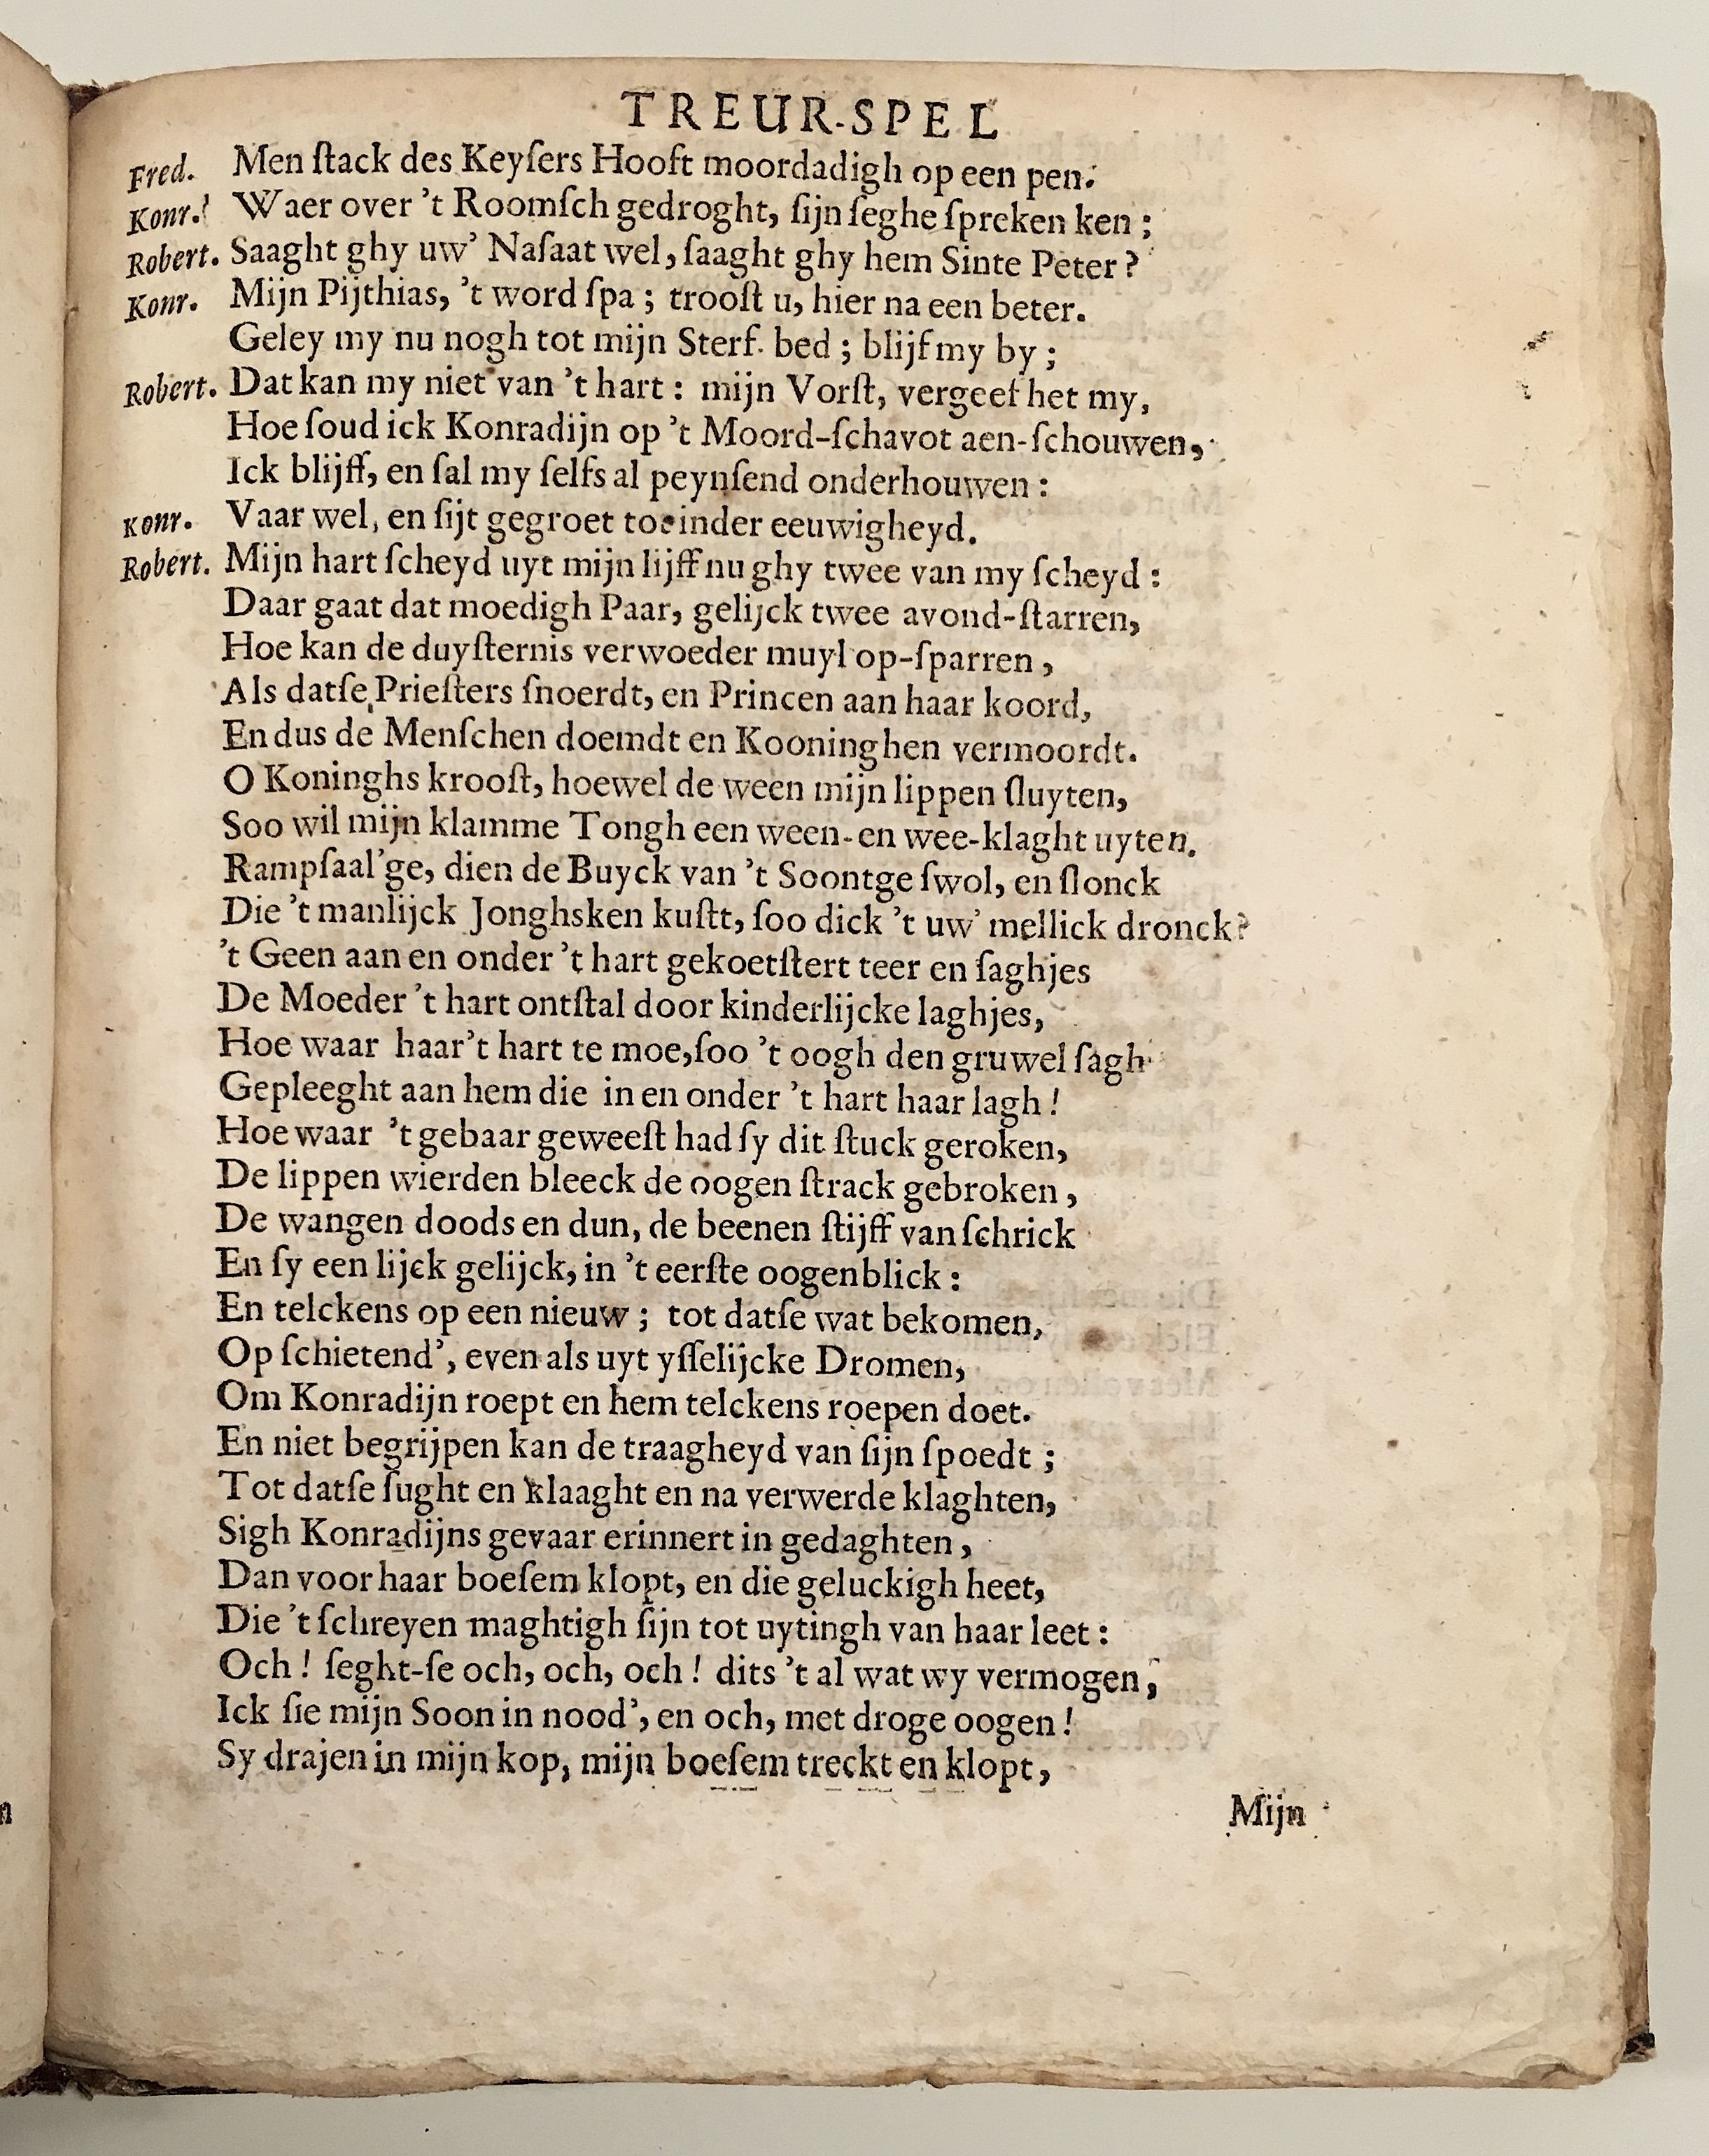 TREUR-SPEL
Fred. Men ſtack des Keyſers Hooft moordadigh op een pen.
Konr. Waer over 't Roomſch gedroght, ſijn ſeghe ſpreken ken ;
Robert. Saaght ghy uw' Naſaat wel, ſaaght ghy hem Sinte Peter ?
Konr. Mijn Pijthias, 't word ſpa ; trooſt u, hier na een beter.
Geley my nu nogh tot mijn Sterf-bed ; blijf my by ;
Robert. Dat kan my niet van 't hart : mijn Vorſt, vergeef het my,
Hoe ſoud ick Konradijn op 't Moord-ſchavot aen-ſchouwen,
Ick blijff, en ſal my ſelfs al peynſend onderhouwen :
Konr. Vaar wel, en ſijt gegroet tot inder eeuwigheyd.
Robert. Mijn hart ſcheyd uyt mijn lijff nu ghy twee van my ſcheyd :
Daar gaat dat moedigh Paar, gelijck twee avond-ſtarren,
Hoe kan de duyſternis verwoeder muyl op-ſparren ,
Als datſe Prieſters ſnoerdt, en Princen aan haar koord,
En dus de Menſchen doemdt en Kooninghen vermoordt.
O Koninghs krooſt, hoewel de ween mijn lippen ſluyten,
Soo wil mijn klamme Tongh een ween- en wee-klaght uyten.
Rampſaal'ge, dien de Buyck van 't Soontge ſwol, en ſlonck
Die 't manlijck Jonghsken kuſtt, ſoo dick 't uw' mellick dronck?
't Geen aan en onder 't hart gekoetſtert teer en ſaghjes
De Moeder 't hart ontſtal door kinderlijcke laghjes,
Hoe waar haar't hart te moe,ſoo 't oogh den gruwel ſagh
Gepleeght aan hem die in en onder 't hart haar lagh !
Hoe waar 't gebaar geweeſt had ſy dit ſtuck geroken,
De lippen wierden bleeck de oogen ſtrack gebroken ,
De wangen doods en dun, de beenen ſtijff van ſchrick
En ſy een lijck gelijck, in 't eerſte oogenblick :
En telckens op een nieuw ; tot datſe wat bekomen,
Op ſchietend', even als uyt yſſelijcke Dromen,
Om Konradijn roept en hem telckens roepen doet.
En niet begrijpen kan de traagheyd van ſijn ſpoedt ;
Tot datſe ſught en klaaght en na verwerde klaghten,
Sigh Konradijns gevaar erinnert in gedaghten ,
Dan voor haar boeſem klopt, en die geluckigh heet,
Die 't ſchreyen maghtigh ſijn tot uytingh van haar leet :
Och ! ſeght-ſe och, och, och ! dits 't al wat wy vermogen,
Ick ſie mijn Soon in nood', en och, met droge oogen !
Sy drajen in mijn kop, mijn boeſem treckt en klopt,
Mijn